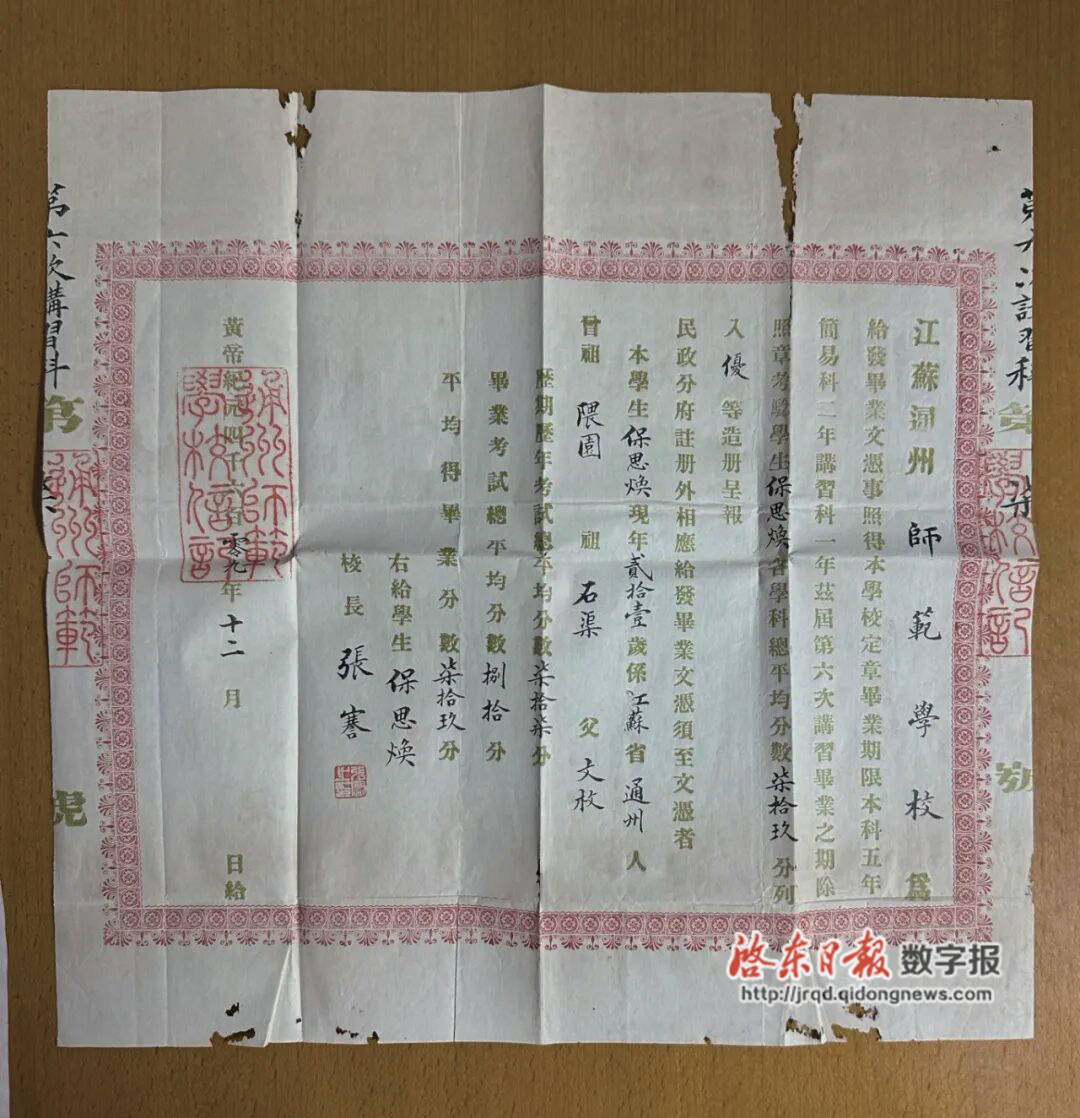 江蘇通州師範學校為
給發畢業文憑事照得本學校定章畢業期限本科五年
簡易科二年講習科一年茲屆第六次講習畢業之期除
照章考驗學生保思煥各學科總平均分數柒拾玖分列
入優等造冊呈報
民政分府註冊外相應給發畢業文憑須至文憑者
本學生保思煥現年貳拾壹歲係江蘇省通州人
曾祖 隈園 祖 石渠 父 文枚
歷期歷年考試總平均分數柒拾柒分
畢業考試總平均分數捌拾分
平均得畢業分數柒拾玖分
右給學生保思煥
校長 張謇
黃帝紀元四千六百零九年十二月 日給
通州師範學校信記
第六次講習科第柒號
學校信記
第六次講習科第
號
通州師範
啓东日报 数字报
http://jrqd.qidongnews.com